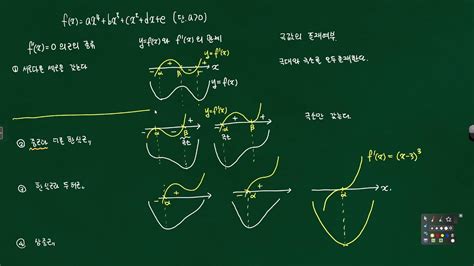 f(x)=ax⁴+bx³+cx²+dx+e (단, a>0)
f'(x)=0 의 근의 종류
y=f(x)와 f'(x)의 관계
극값의 존재여부
① 서로다른 세근을 갖는다
y=f'(x)
y=f(x)
- α + β - γ +
x
극대와 극소를 모두 존재한다.
② 중근과 다른 한실근
y=f'(x)
y=f'(x)
α β
α β
극소
극소
극소만 갖는다.
③ 한실근과 두허근
- α +
- α +
④ 삼중근
f'(x) = (x-3)³
α
x.